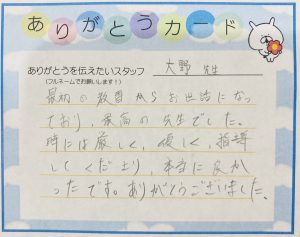 ありがとうカード
ありがとうを伝えたいスタッフ
(フルネームでお願いします!)
大野 先生
最初の教習からお世話になっ
ており、最高の先生でした。
時には厳しく、優しく、指導
してくださり、本当に良か
ったです。ありがとうございました。